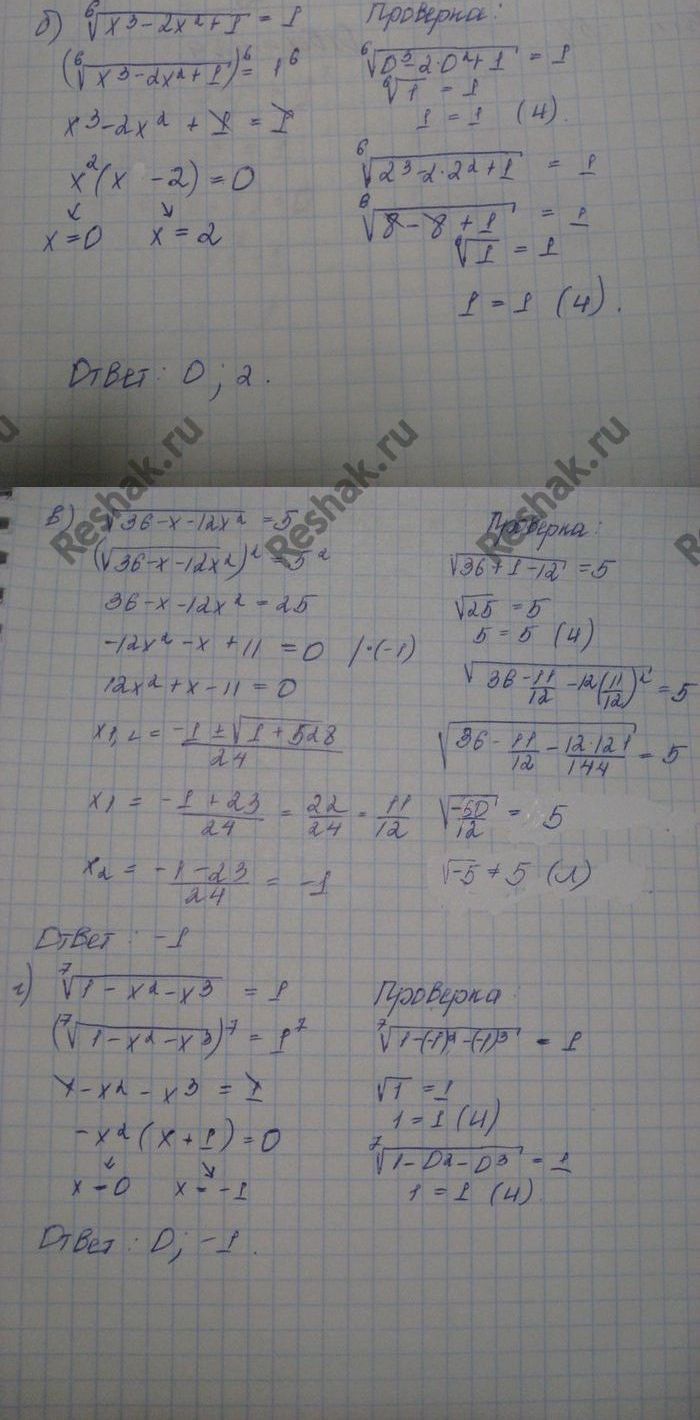 б) ⁶√(x³-2x²+1) = 1
(⁶√(x³-2x²+1))⁶ = 1⁶
x³-2x² + 1 = 1
x²(x -2) = 0
x=0 x=2
Проверка:
⁶√(0³-2·0²+1) = 1
⁶√1 = 1
1 = 1 (И).
⁶√(2³-2·2²+1) = 1
⁶√(8-8+1) = 1
⁶√1 = 1
1 = 1 (И).
Ответ: 0; 2.
Reshak.ru
Reshak.ru
Reshak.ru
в) √(36-x-12x²) = 5
(√(36-x-12x²))² = 5²
36-x-12x² = 25
-12x² - x + 11 = 0 /·(-1)
12x²+x-11=0
x1,2 = (-1 ± √(1+528))/24
x1 = (-1+23)/24 = 22/24 = 11/12
x2 = (-1-23)/24 = -1
Проверка:
√(36+1-12) = 5
√25 = 5
5 = 5 (И)
√(36-11/12-12(11/12)²) = 5
√(36-11/12-12·121/144) = 5
√(-60/12) = 5
√-5 ≠ 5 (Л)
Ответ: -1
г) ⁷√(1-x²-x³) = 1
(⁷√(1-x²-x³))⁷ = 1⁷
1-x²-x³ = 1
-x²(x+1)=0
x=0 x=-1
Проверка
⁷√(1-(-1)²-(-1)³) = 1
√1 = 1
1=1 (И)
⁷√(1-0²-0³) = 1
1 = 1 (И)
Ответ: 0; -1.